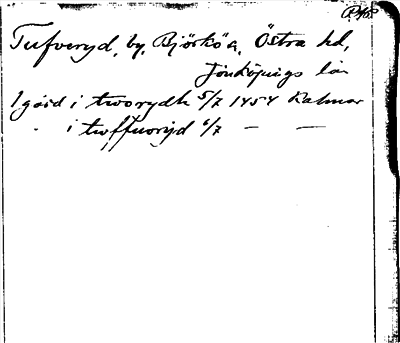 Tufveryd, by, Björkö s., Östra hd,
Jönköpings län
1 gård i tworydh 5/7 1454 Kalmar
" i twffuoryd 6/7 — —